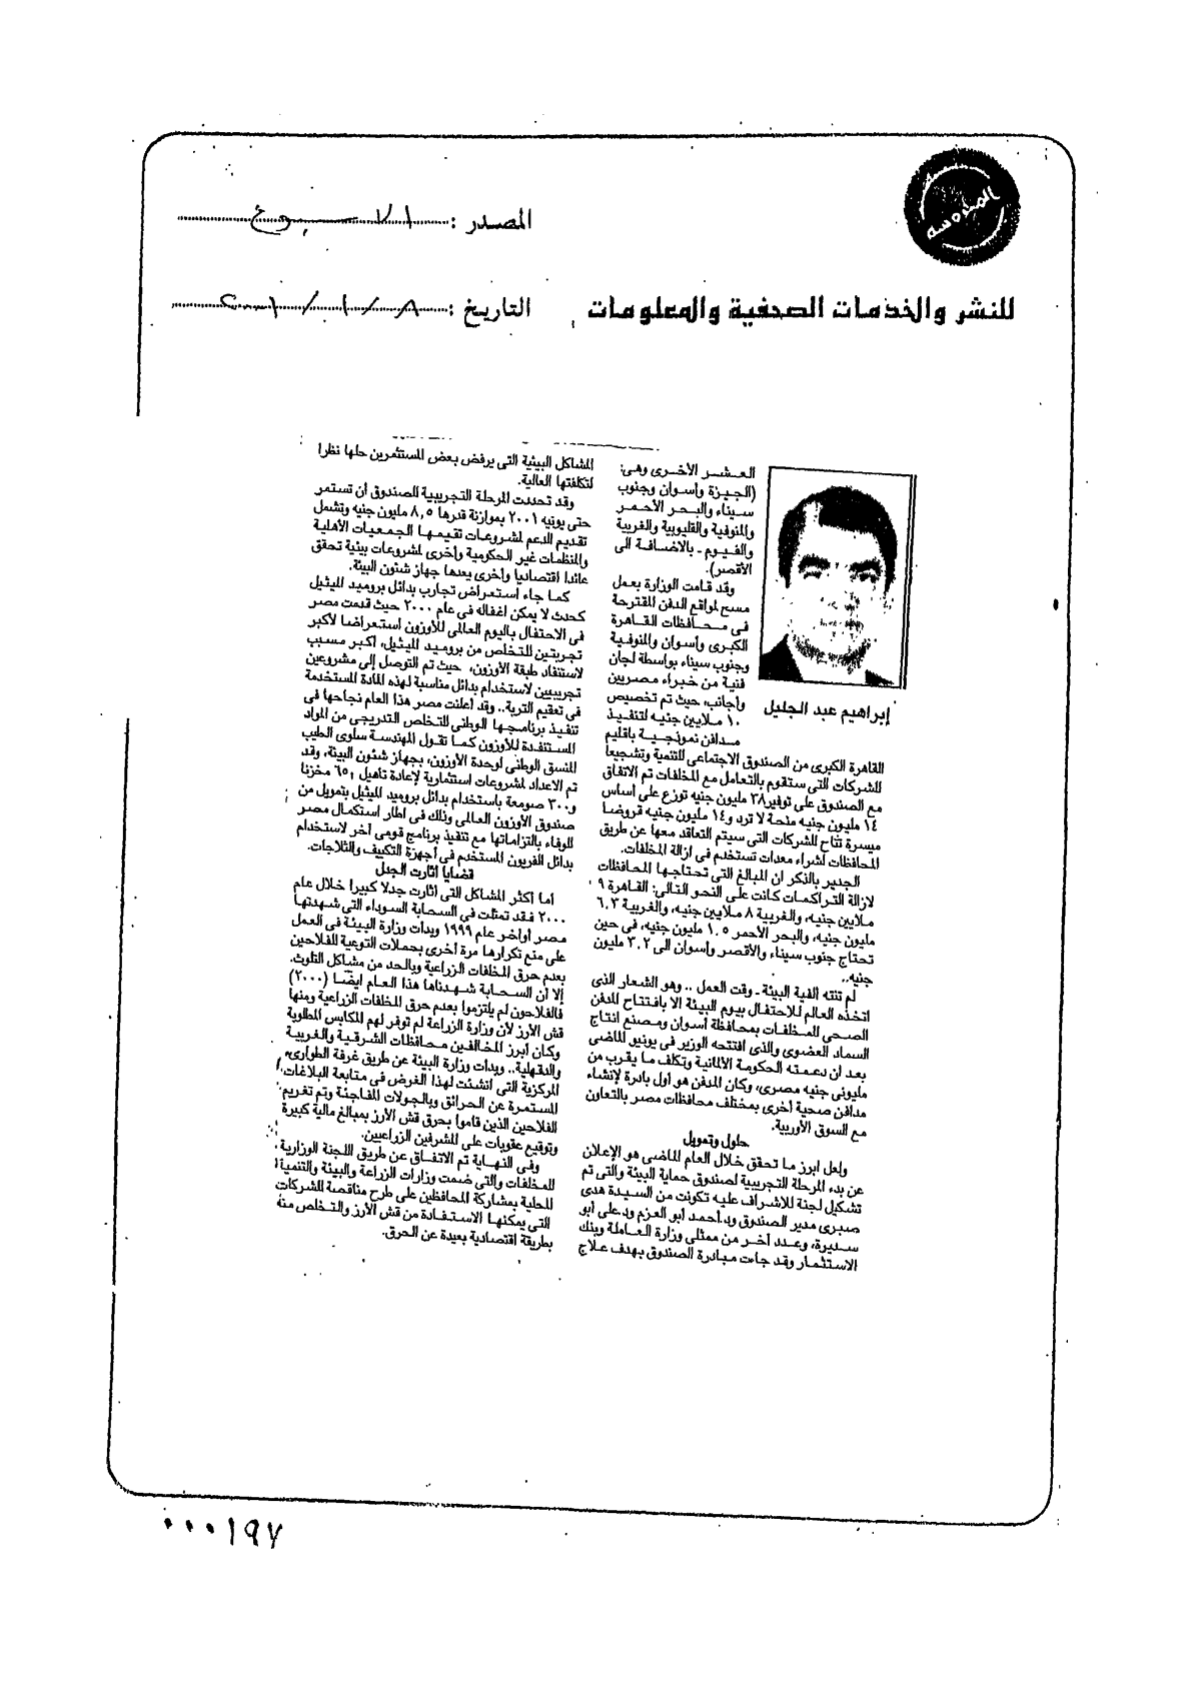 المدوسة
المصدر : الاسبوع
للنشر والخدمات الصحفية والمعلومات
التاريخ : ٨/١/٢٠٠١
إبراهيم عبد الجليل
العشر الأخرى وهى:
(الجيزة وأسوان وجنوب
سيناء والبحر الأحمر
والمنوفية والقليوبية والغربية
والفيوم - بالاضافة الى
الأقصر).
وقد قامت الوزارة بعمل
مسح لمواقع الدفن المقترحة
فى محافظات القاهرة
الكبرى وأسوان والمنوفية
وجنوب سيناء بواسطة لجان
فنية من خبراء مصريين
وأجانب، حيث تم تخصيص
١٠ ملايين جنيه لتنفيذ
مدافن نموذجية باقليم
القاهرة الكبرى من الصندوق الاجتماعى للتنمية وتشجيعا
للشركات التى ستقوم بالتعامل مع المخلفات تم الاتفاق
مع الصندوق على توفير ٢٨ مليون جنيه توزع على أساس
١٤ مليون جنيه منحة لا ترد و١٤ مليون جنيه قروضا
ميسرة تتاح للشركات التى سيتم التعاقد معها عن طريق
المحافظات لشراء معدات تستخدم فى ازالة المخلفات.
الجدير بالذكر ان المبالغ التى تحتاجها المحافظات
لازالة التراكمات كانت على النحو التالى: القاهرة ٩
ملايين جنيه، والغربية ٨ ملايين جنيه، والغربية ٦.٣
مليون جنيه، والبحر الأحمر ١.٥ مليون جنيه، فى حين
تحتاج جنوب سيناء والأقصر وأسوان الى ٣.٢ مليون
جنيه..
لم تنته ألفية البيئة - وقت العمل .. وهو الشعار الذى
اتخذه العالم للاحتفال بيوم البيئة الا بافتتاح المدفن
الصحى للمخلفات بمحافظة أسوان ومصنع انتاج
السماد العضوى والذى افتتحه الوزير فى يونيو الماضى
بعد ان دعمته الحكومة الالمانية وتكلف ما يقرب من
مليونى جنيه مصرى، وكان المدفن هو أول بادرة لإنشاء
مدافن صحية أخرى بمختلف محافظات مصر بالتعاون
مع السوق الأوربية.
حلول وتمويل
ولعل ابرز ما تحقق خلال العام الماضى هو الإعلان
عن بدء المرحلة التجريبية لصندوق حماية البيئة والتى تم
تشكيل لجنة للاشراف عليه تكونت من السيدة هدى
صبرى مدير الصندوق ود.أحمد ابو العزم ود.على أبو
سديرة، وعدد آخر من ممثلى وزارة العاملة وبنك
الاستثمار وقد جاءت مبادرة الصندوق بهدف علاج
المشاكل البيئية التى يرفض بعض المستثمرين حلها نظرا
لتكلفتها العالية.
وقد تحددت المرحلة التجريبية للصندوق أن تستمر
حتى يونيه ٢٠٠١ بموازنة قدرها ٨,٥ مليون جنيه وتشمل
تقديم الدعم لمشروعات تقيمها الجمعيات الأهلية
والمنظمات غير الحكومية وأخرى لمشروعات بيئية تحقق
عائدا اقتصاديا وأخرى يعدها جهاز شئون البيئة.
كما جاء استعراض تجارب بدائل بروميد الميثيل
كحدث لا يمكن اغفاله فى عام ٢٠٠٠ حيث قدمت مصر
فى الاحتفال باليوم العالمى للأوزون استعراضا لأكبر
تجربتين للتخلص من بروميد الميثيل، أكبر مسبب
لاستنفاد طبقة الأوزون، حيث تم التوصل إلى مشروعين
تجريبيين لاستخدام بدائل مناسبة لهذه المادة المستخدمة
فى تعقيم التربة.. وقد أعلنت مصر هذا العام نجاحها فى
تنفيذ برنامجها الوطنى للتخلص التدريجى من المواد
المستنفدة للأوزون كما تقول المهندسة سلوى الطيب
المنسق الوطنى لوحدة الأوزون، بجهاز شئون البيئة، وقد
تم الاعداد لمشروعات استثمارية لإعادة تأهيل ٦٥٠ مخزنا
و٣٠٠ صومعة باستخدام بدائل بروميد الميثيل بتمويل من
صندوق الأوزون العالمى وذلك فى اطار استكمال مصر
للوفاء بالتزاماتها مع تنفيذ برنامج قومى آخر لاستخدام
بدائل الفريون المستخدم فى أجهزة التكييف والثلاجات.
قضايا أثارت الجدل
أما أكثر المشاكل التى أثارت جدلا كبيرا خلال عام
٢٠٠٠ فقد تمثلت فى السحابة السوداء التى شهدتها
مصر أواخر عام ١٩٩٩ وبدأت وزارة البيئة فى العمل
على منع تكرارها مرة أخرى بحملات التوعية للفلاحين
بعدم حرق المخلفات الزراعية وبالحد من مشاكل التلوث.
إلا أن السحابة شهدناها هذا العام ايضا (٢٠٠٠)
فالفلاحون لم يلتزموا بعدم حرق المخلفات الزراعية ومنها
قش الأرز لأن وزارة الزراعة لم توفر لهم المكابس المطلوبة
وكان أبرز المخالفين محافظات الشرقية والغربية
والدقهلية.. وبدأت وزارة البيئة عن طريق غرفة الطوارىء
المركزية التى انشئت لهذا الغرض فى متابعة البلاغات
المستمرة عن الحرائق وبالجولات المفاجئة وتم تغريم
الفلاحين الذين قاموا بحرق قش الأرز بمبالغ مالية كبيرة
وتوقيع عقوبات على المشرفين الزراعيين.
وفى النهاية تم الاتفاق عن طريق اللجنة الوزارية
للمخلفات والتى ضمت وزارات الزراعة والبيئة والتنمية
المحلية بمشاركة المحافظين على طرح مناقصة للشركات
التى يمكنها الاستفادة من قش الأرز والتخلص منه
بطريقة اقتصادية بعيدة عن الحرق.
٠٠٠١٩٧